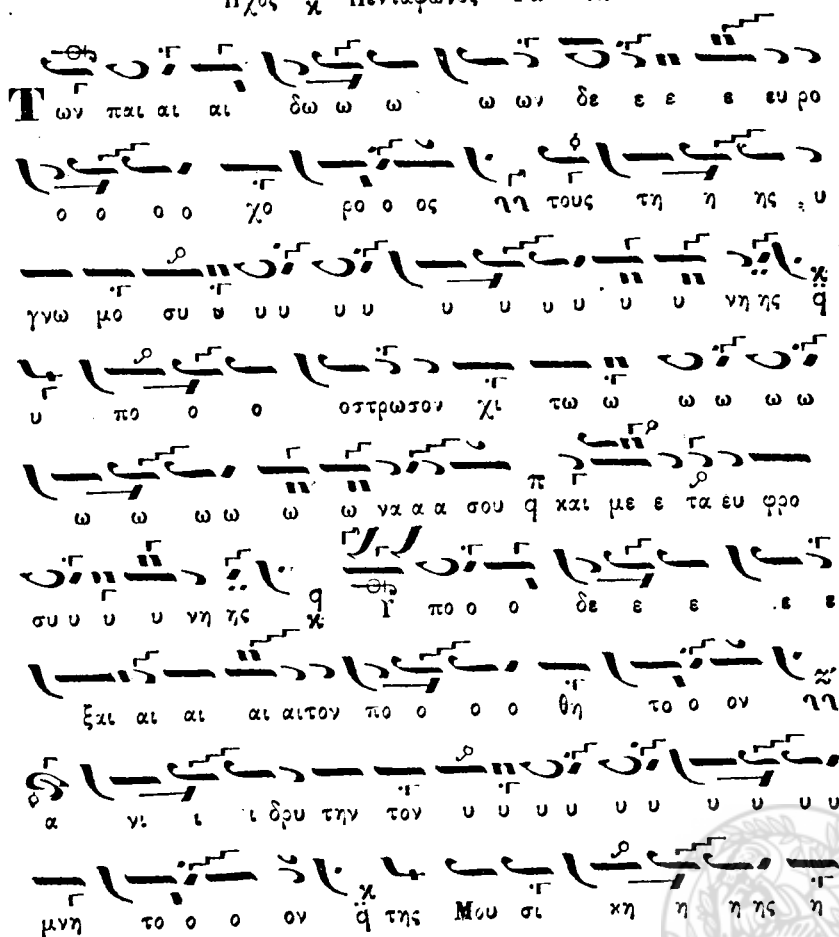 Των παι αι αι δω ω ω ω ων δε ε ε ε ευ ρο
ο ο ο ο χο ρο ο ος τους τη η ης υ
γνω μο συ υ υ υ υ υ υ υ υ υ υ υ νη ης
υ πο ο ο οστρωσον χι τω ω ω ω ω ω
ω ω ω ω ω ω να α α σου και με ε τα ευ φρο
συ υ υ υ νη ης Υ πο ο ο δε ε ε ε ε
ξαι αι αι αι αιτον πο ο ο ο θη το ο ον
α νι ι ι δρυ την τον υ υ υ υ υ υ υ υ υ υ
μνη το ο ο ον της Μου σι κη η η ης η